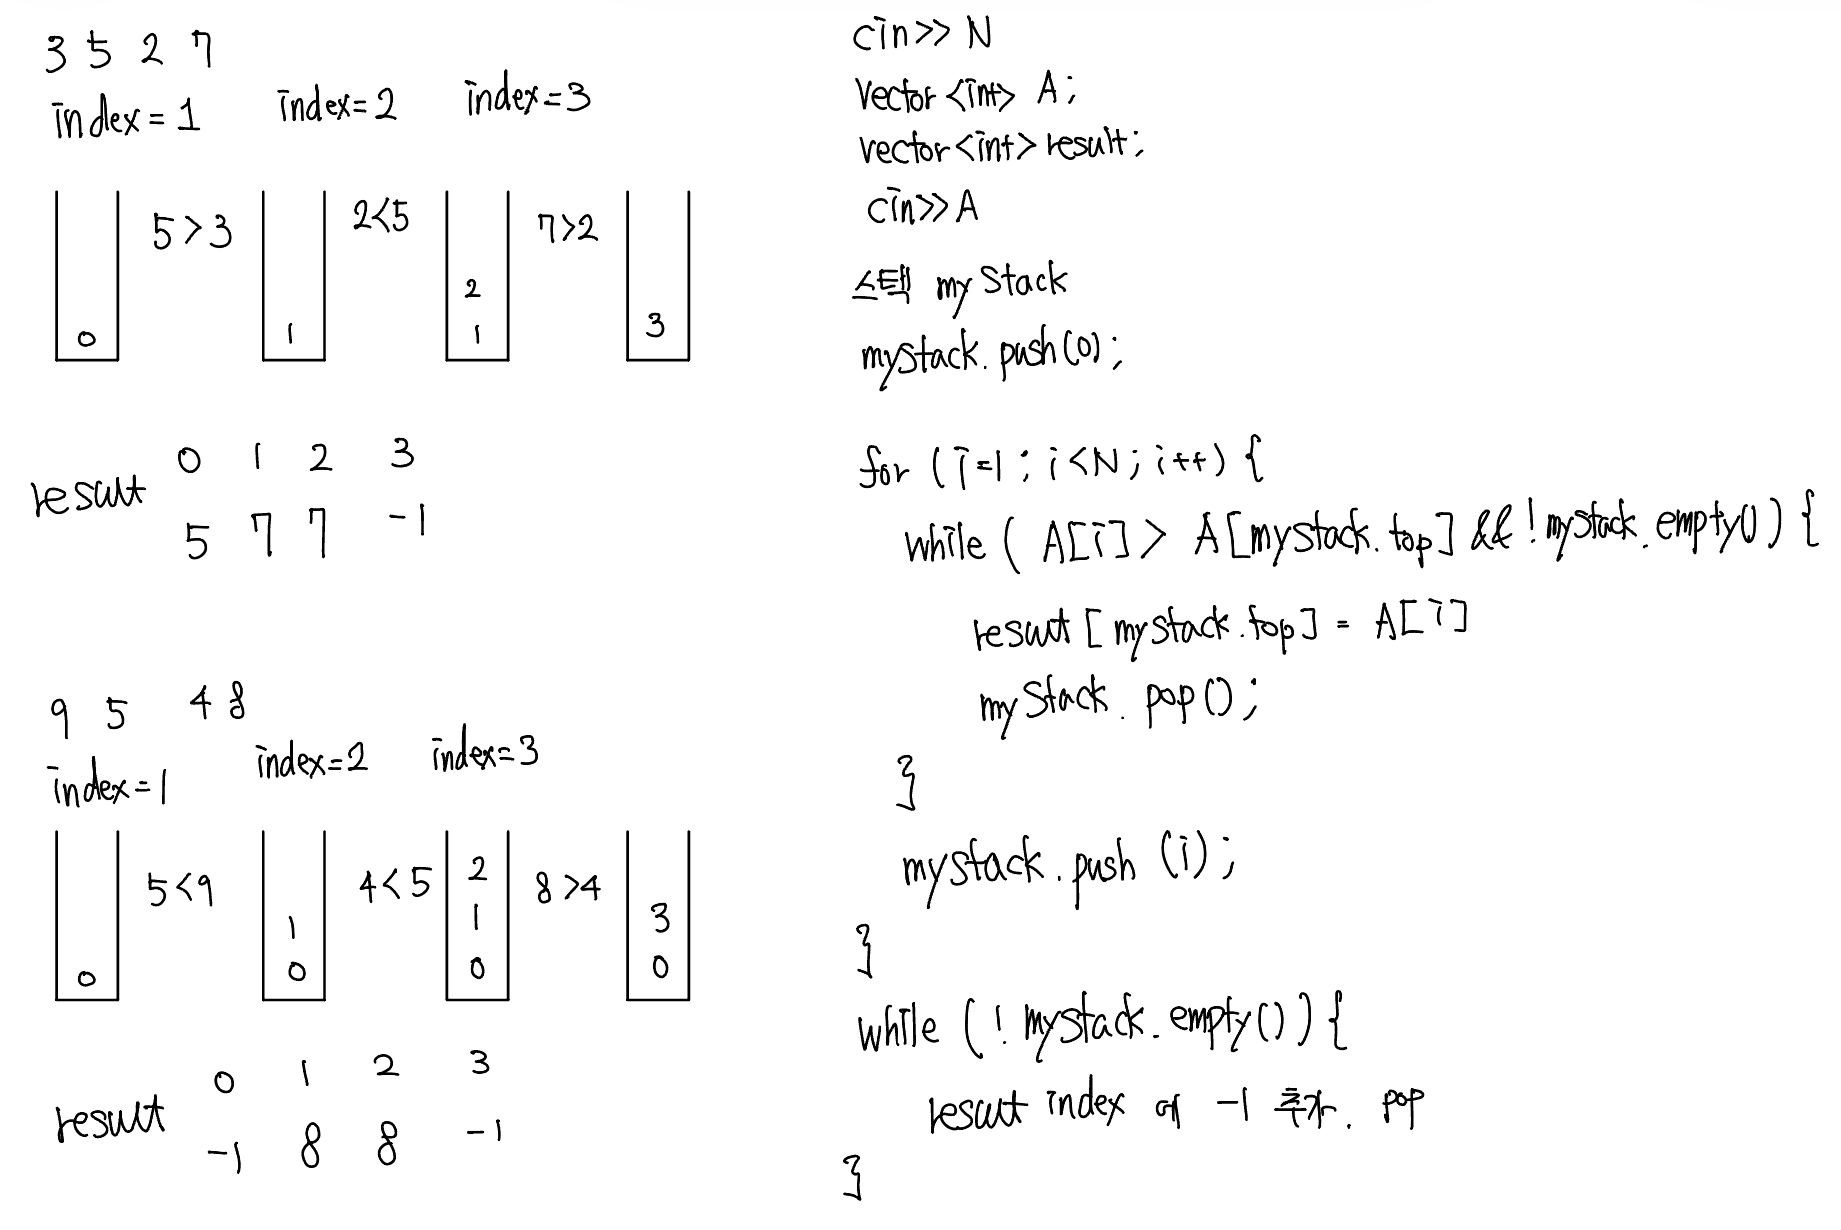 3 5 2 7
index=1 index=2 index=3
5>3 2<5 7>2
0 1 2 1 3
result 0 1 2 3
5 7 7 -1
9 5 4 8
index=1 index=2 index=3
5<9 4<5 8>4
0 1 0 2 1 0 3 0
result 0 1 2 3
-1 8 8 -1
cin>>N
Vector<int> A;
vector<int> result;
cin>>A
스택 my Stack
mystack.push(0);
for (i=1; i<N; i++) {
while ( A[i] > A[mystack.top] && !mystack.empty()) {
result [mystack.top] = A[i]
my Stack. pop();
}
mystack.push (i);
}
while (! mystack.empty()) {
result index 에 -1 추가. pop
}